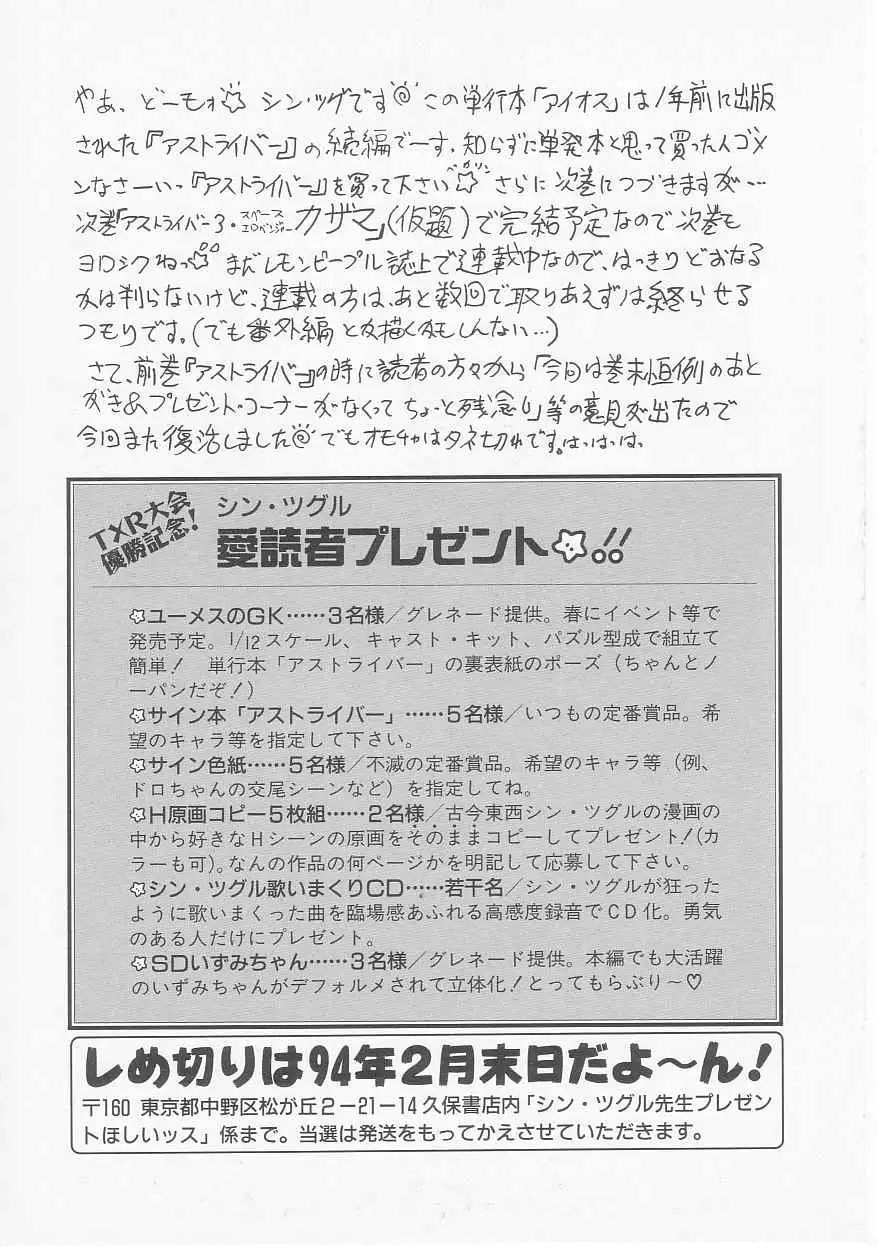 やあ、どーもォ☆ シン・ツグです この単行本「アイオス」は1年前に出版
された『アストライバー』の続編でーす。知らずに単発本と思って買った人ゴメ
ンなさーいっ『アストライバー』を買って下さい ペコリン さらに次巻につづきますが…
次巻「アストライバー3・スペースエロベンジャーカザマ」(仮題)で完結予定なので次巻も
ヨロシクねっ まだレモンピープル誌上で連載中なので、はっきりどおなる
かは判らないけど、連載の方は、あと数回で取りあえずは終らせる
つもりです。(でも番外編とか描くかもしんない…)
さて、前巻『アストライバー』の時に読者の方々から「今回は巻末恒例のあと
がき&プレゼント・コーナーがなくってちょっと残念り」等の意見が出たので
今回また復活しました でもオモチャはタネ切れです。はっはっは、
TXR大会
優勝記念!
シン・ツグル
愛読者プレゼント☆!!
☆ユーメスのGK……3名様/グレネード提供。春にイベント等で
発売予定。1/12スケール、キャスト・キット、パズル型成で組立て
簡単! 単行本「アストライバー」の裏表紙のポーズ(ちゃんとノ
ーパンだぞ!)
☆サイン本「アストライバー」……5名様/いつもの定番賞品。希
望のキャラ等を指定して下さい。
☆サイン色紙……5名様/不滅の定番賞品。希望のキャラ等(例、
ドロちゃんの交尾シーンなど)を指定してね。
☆H原画コピー5枚組……2名様/古今東西シン・ツグルの漫画の
中から好きなHシーンの原画をそのままコピーしてプレゼント!(カ
ラーも可)。なんの作品の何ページかを明記して応募して下さい。
☆シン・ツグル歌いまくりCD……若干名/シン・ツグルが狂った
ように歌いまくった曲を臨場感あふれる高感度録音でCD化。勇気
のある人だけにプレゼント。
☆SDいずみちゃん……3名様/グレネード提供。本編でも大活躍
のいずみちゃんがデフォルメされて立体化!とってもらぶり~♡
しめ切りは94年2月末日だよ~ん!
〒160 東京都中野区松が丘2-21-14久保書店内「シン・ツグル先生プレゼン
トほしいッス」係まで。当選は発送をもってかえさせていただきます。